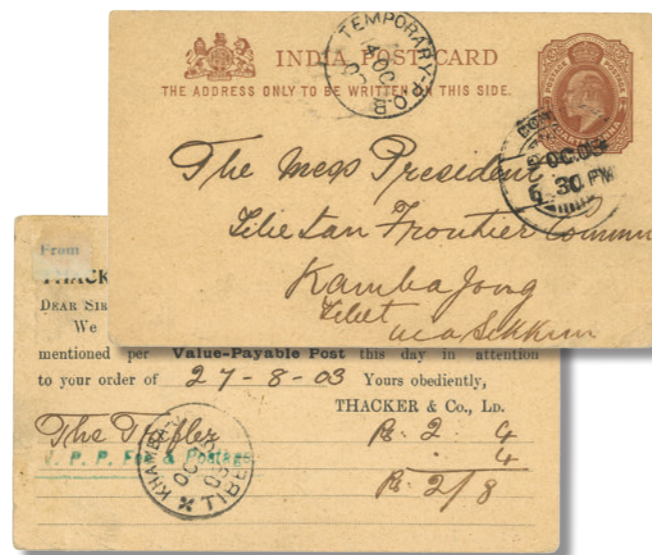 INDIA POST CARD
THE ADDRESS ONLY TO BE WRITTEN ON THIS SIDE.
POSTAGE POSTAGE
TEMPORARY-P.O-B
OC.03
6 30 PM
The Mess President
Frontier
Kamba Jong
Tibet
via Sikkim
From
DEAR SIR
We
mentioned per Value-Payable Post this day in attention
to your order of 27-8-03 Yours obediently,
THACKER & Co., LD.
The Rs. 2 4
V. P. P. Fee & Postage . 4
Rs. 2/8
OC
03